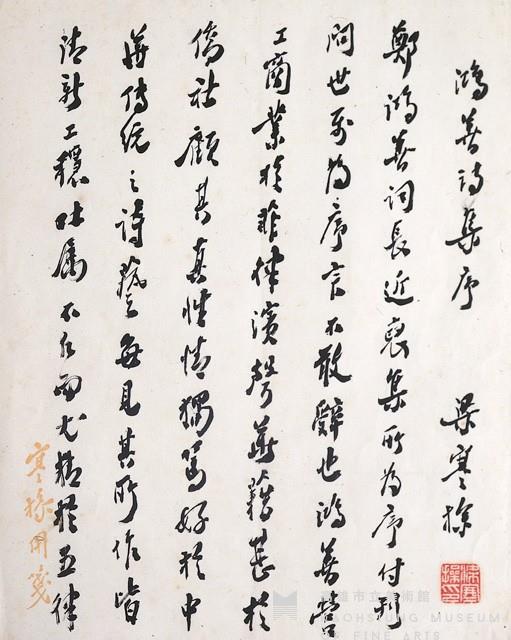 鴻善詩集序　梁寒操
鄭鴻善詞長近裒集所為序付刊
問世承為序言不敢辭也鴻善營
工商業於菲律濱聲華藉甚於
僑社顧其真性情獨篤好於中
華傳統之詩藝每見其所作皆
清新工穩吐屬不凡而尤精於五律
寒操用箋
高雄市立美術館
KAOHSIUNG MUSEUM
OF FINE ARTS